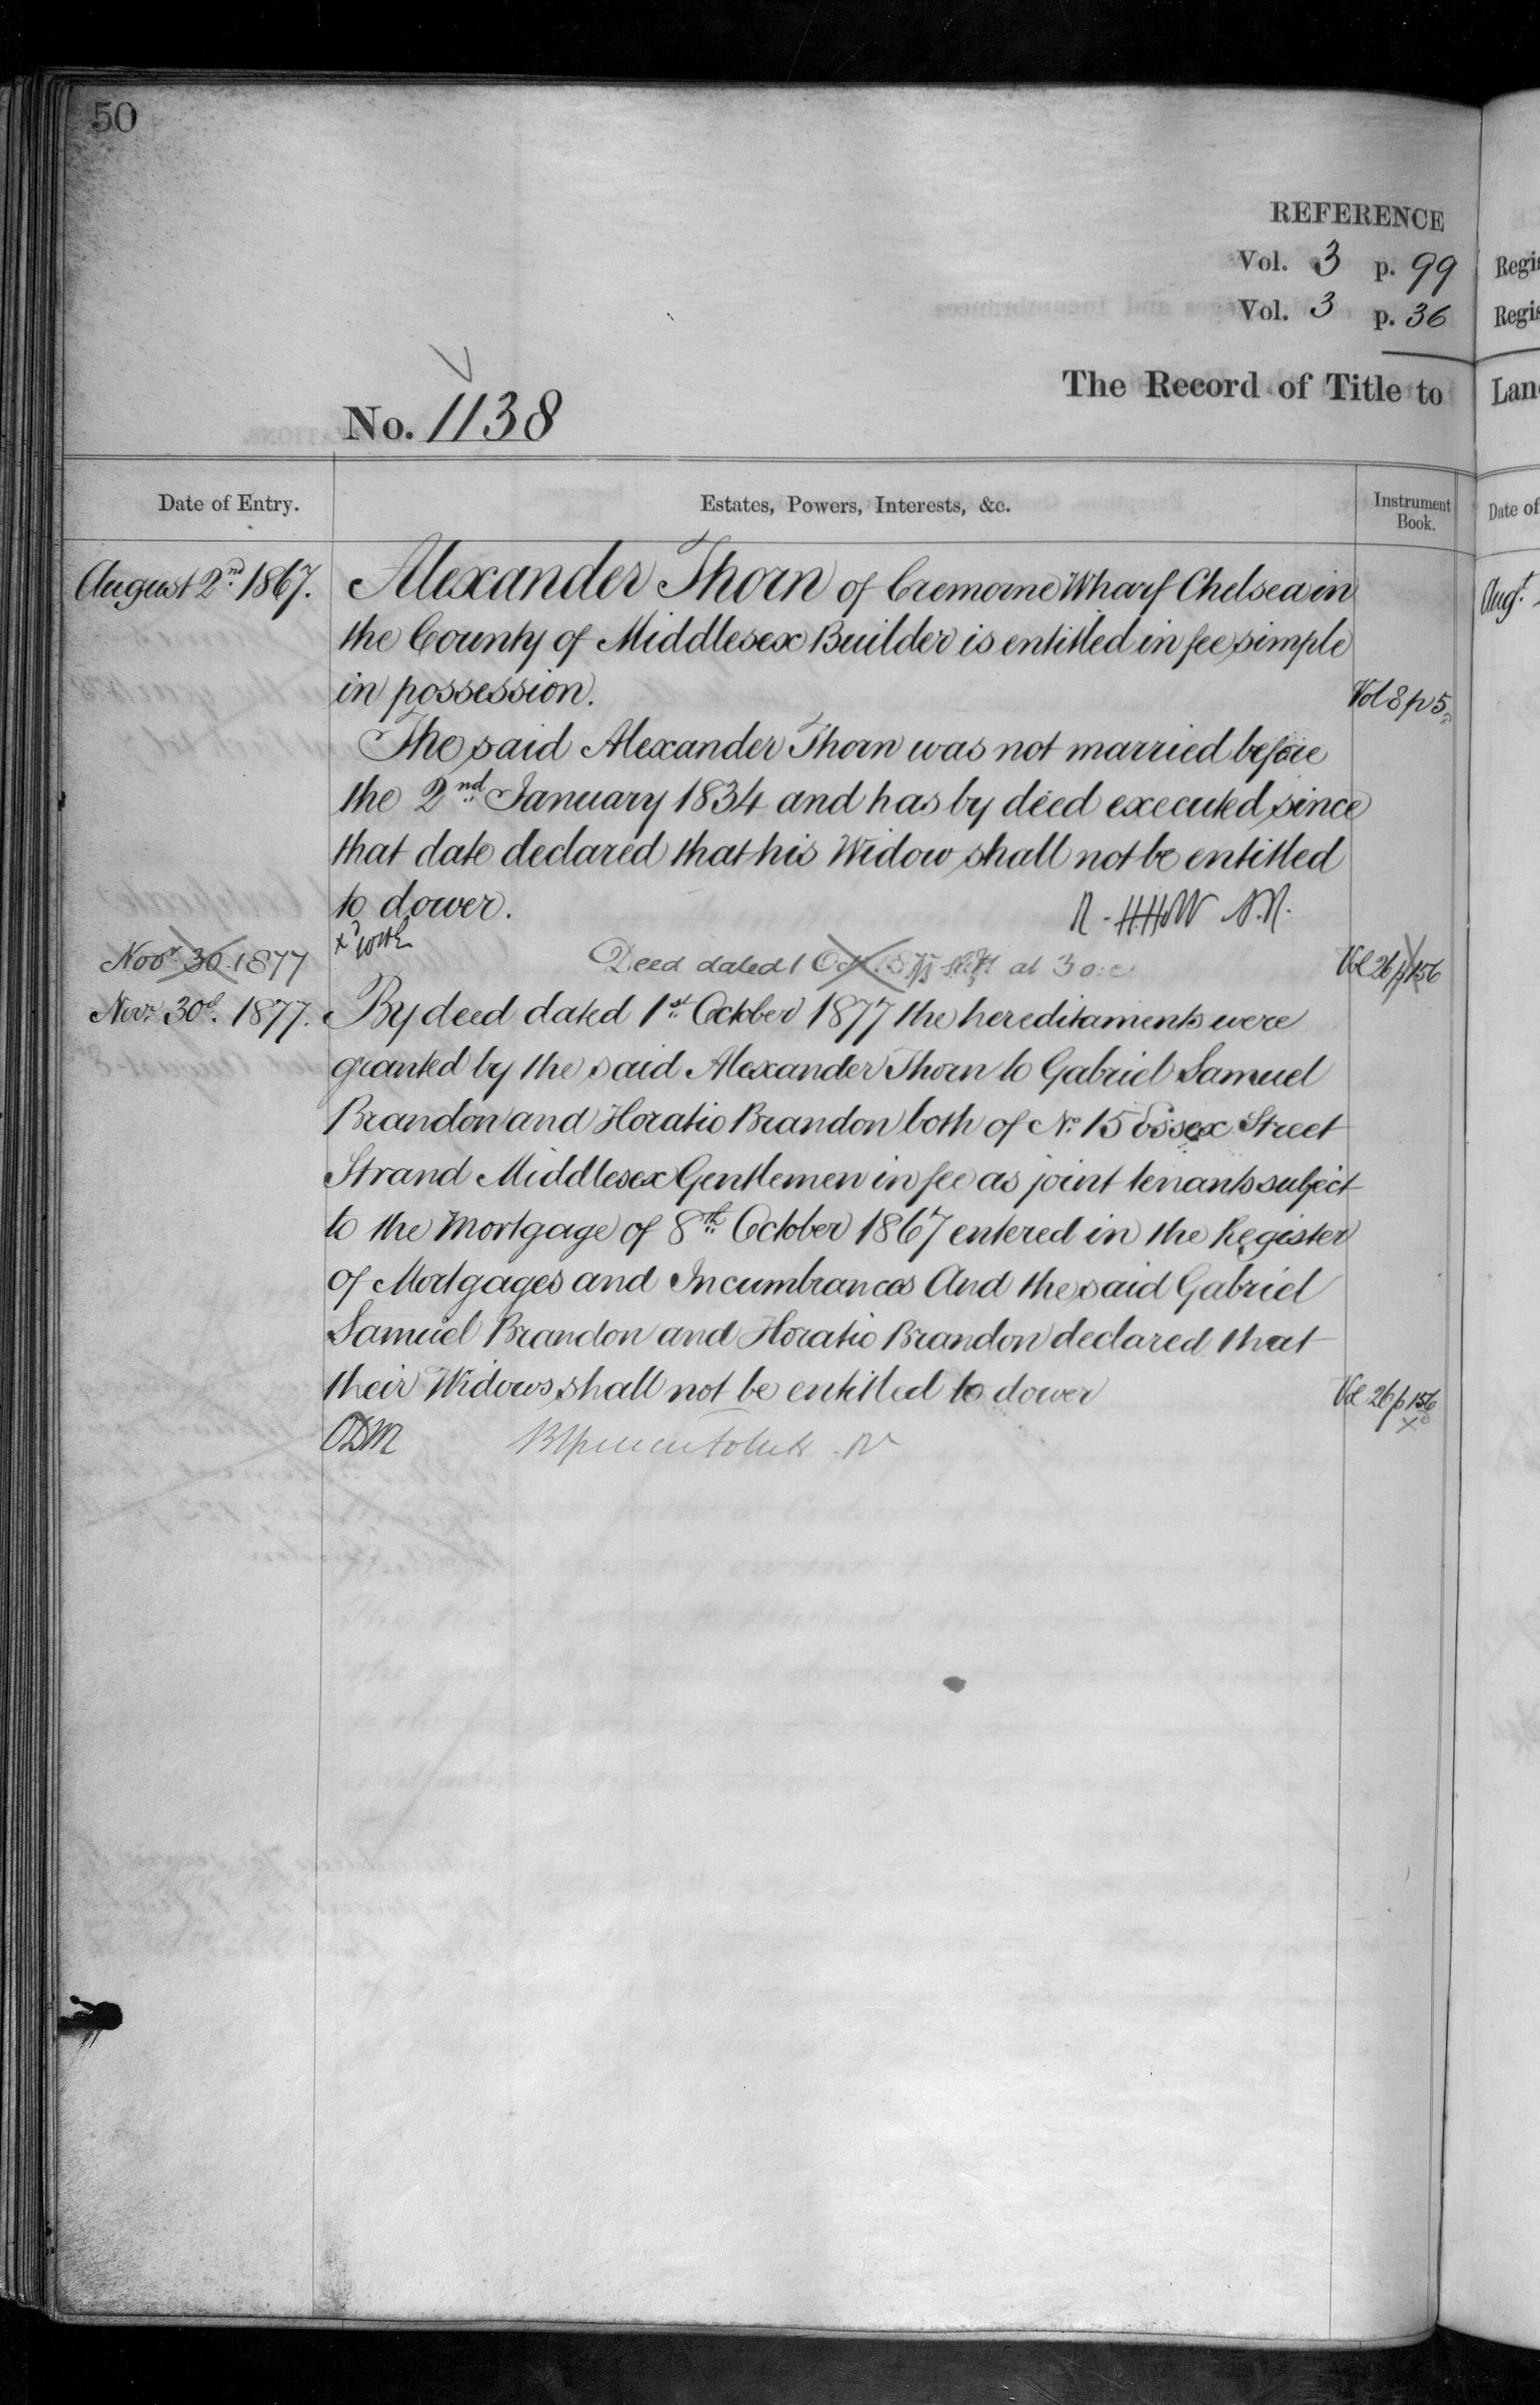 50
REFERENCE
Vol. 3 p. 99
Vol. 3 p. 36
The Record of Title to
No. 1138
Date of Entry.
Estates, Powers, Interests, &c.
Instrument Book.
August 2nd 1867.
Alexander Thorn of Cremorne Wharf Chelsea in
the County of Middlesex Builder is entitled in fee simple
in possession.
Vol 8 p 5
The said Alexander Thorn was not married before
the 2nd January 1834 and has by deed executed since
that date declared that his Widow shall not be entitled
to dower.
Novr 30 1877
Deed dated 1 Oct at 3 o.c
Vol 26 p 156
Novr 30th 1877.
By deed dated 1st October 1877 the hereditaments were
granted by the said Alexander Thorn to Gabriel Samuel
Brandon and Horatio Brandon both of No 15 Essex Street
Strand Middlesex Gentlemen in fee as joint tenants subject
to the Mortgage of 8th October 1867 entered in the Register
of Mortgages and Incumbrances And the said Gabriel
Samuel Brandon and Horatio Brandon declared that
their Widows shall not be entitled to dower
Vol 26 p 156
Regis
Regis
Lan
Date of
Augt